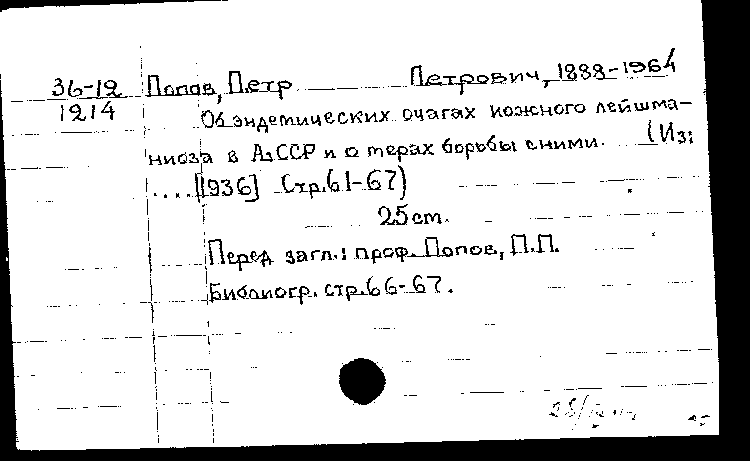 36-12 Попов, Петр Петрович, 1888-1964
1214 Об эндемических очагах кожного лейшма-
ниоза в АзССР и о мерах борьбы с ними. (Из:
....[1936] Стр.61-67)
25 см.
Перед загл.: проф. Попов, П.П.
Библиогр. стр.66-67.